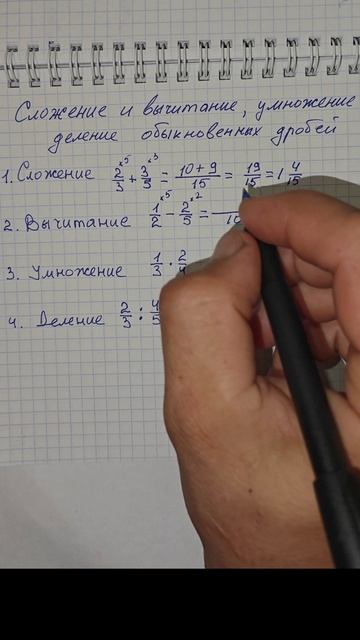 Сложение и вычитание, умножение
деление обыкновенных дробей
1. Сложение 2/3 ˣ⁵ + 3/5 ˣ³ = 10+9/15 = 19/15 = 1 4/15
2. Вычитание 1/2 ˣ⁵ − 2/5 ˣ² = /10
3. Умножение 1/3 · 2/
4. Деление 2/3 : 4/5